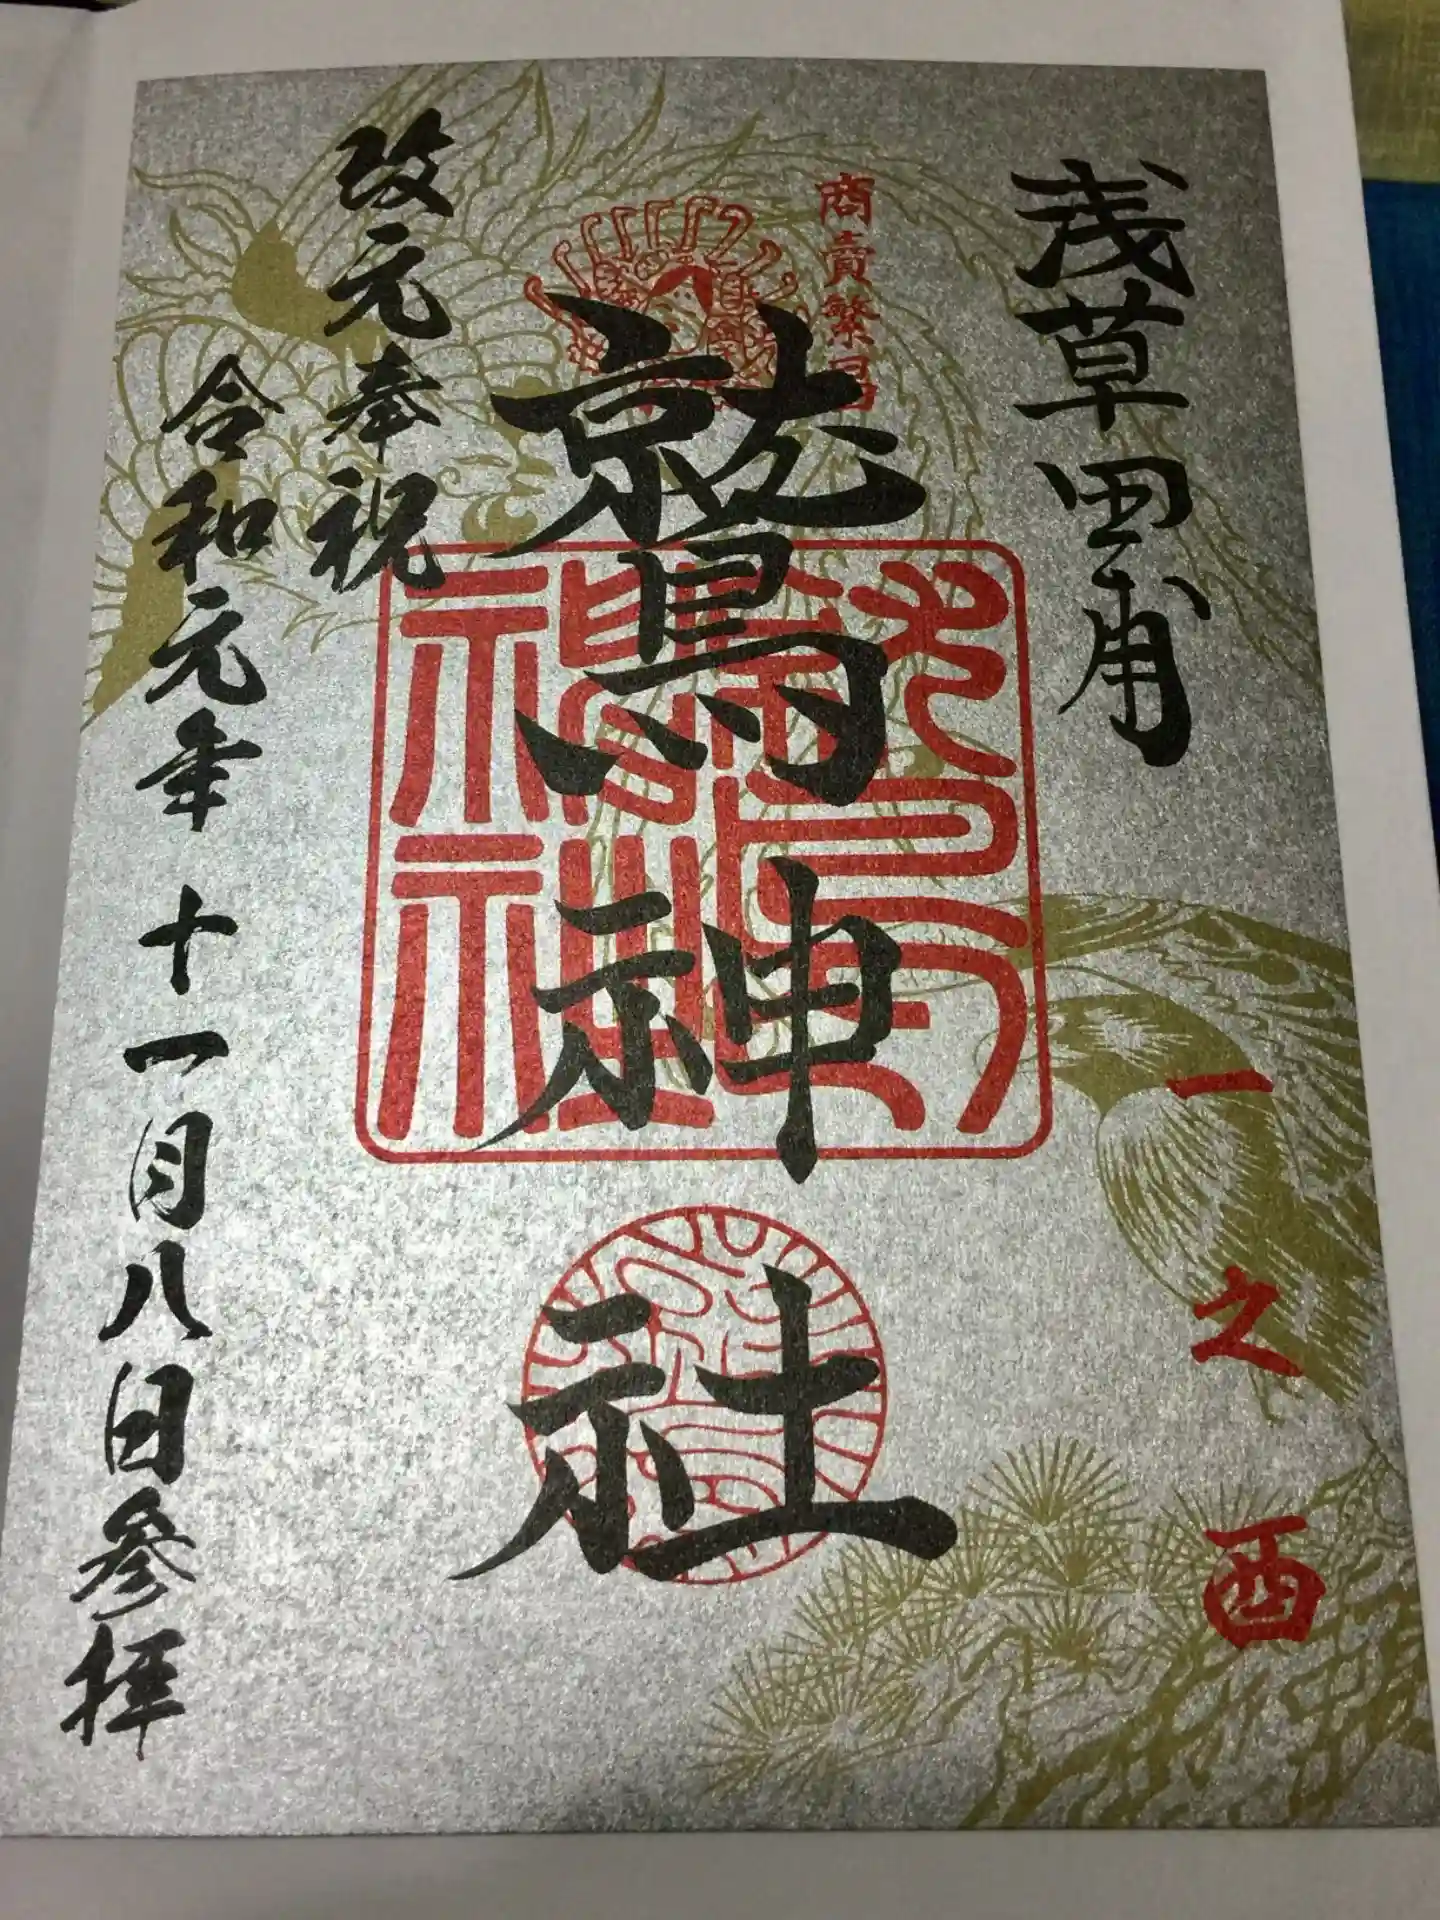 浅草田甫
一之酉
商賣繁昌
鷲神社
鷲神社
改元奉祝
令和元年十一月八日参拝